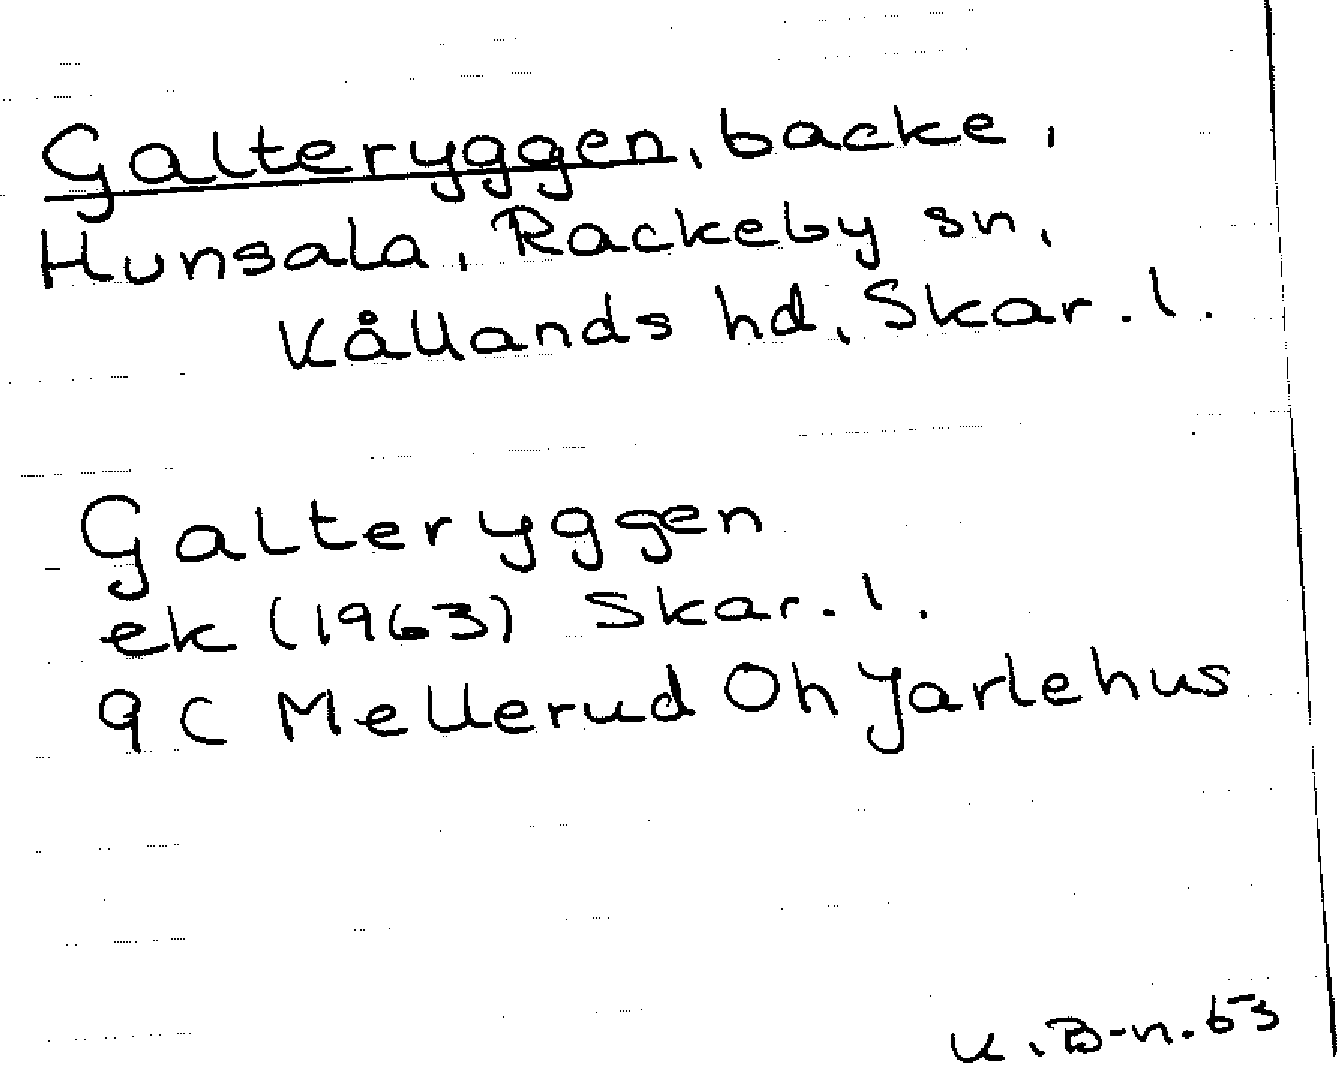 Galteryggen, backe,
Hunsala, Rackeby sn,
Kållands hd, Skar. l.
Galteryggen
ek (1963) Skar. l.
9C Mellerud Oh Jarlehus
K. B-n. 63